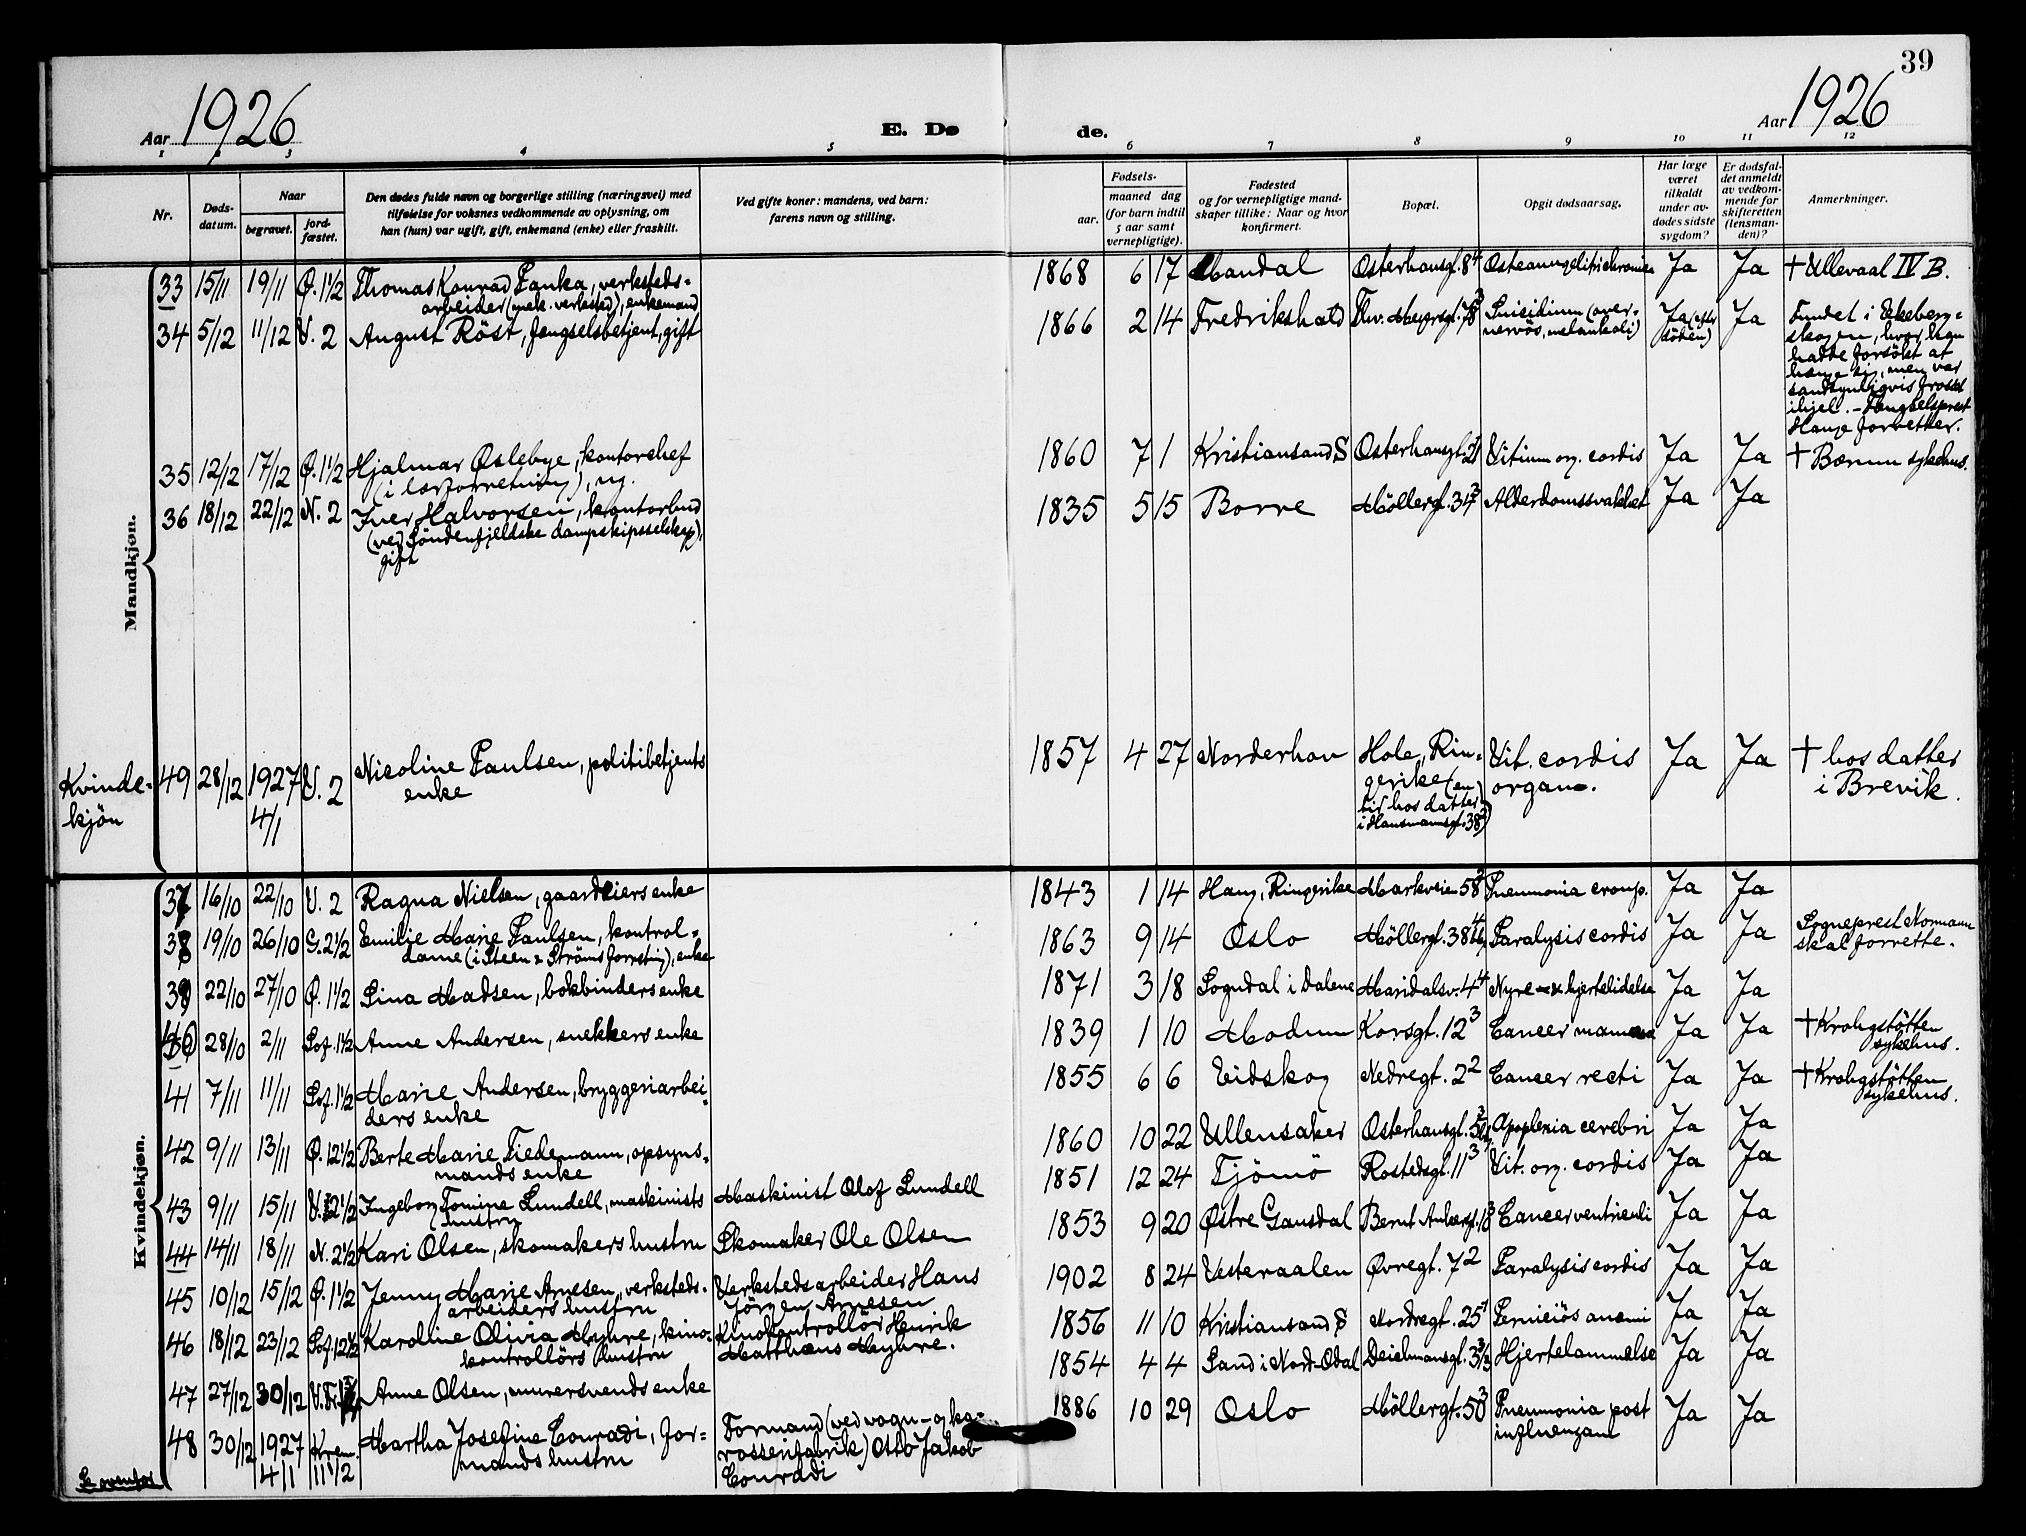 39
Aar 1926
E. Dø
de.
Aar 1926
1 2 3 4 5 6 7 8 9 10 11 12
Nr.
Døds-
datum.
Naar
begravet.
jord-
fæstet.
Den dødes fulde navn og borgerlige stilling (næringsvei) med
tilføielse for voksnes vedkommende av oplysning, om
han (hun) var ugift, gift, enkemand (enke) eller fraskilt.
Ved gifte koner: mandens, ved barn:
farens navn og stilling.
Fødsels-
aar.
maaned dag
(for barn indtil
5 aar samt
vernepligtige).
Fødested
og for vernepligtige mand-
skaper tillike: Naar og hvor
konfirmert.
Bopæl.
Opgit dødsaarsag.
Har læge
været
tilkaldt
under av-
dødes sidste
sygdom?
Er dødsfal-
det anmeldt
av vedkom-
mende for
skifteretten
(lensman-
den)?
Anmerkninger.
Mandkjøn.
33 15/11 19/11 Ø. 1 1/2 Thomas Konrad Fanka, verksteds-
arbeider (mek. verksted), enkemand
1868 6 17 Mandal Osterhausgt. 8 4 Ja Ja † Ullevaal IV B.
34 5/12 11/12 V. 2 August Röst, fengselsbetjent, gift
1866 2 14 Fredrikshald Thv. Meyersgt. Suicidium (over-
nervös, melankoli) Ja (efter
döden) Ja Fundet i Ekeberg-
skogen, hvor han
hadde forsökt at
henge sig, men var
sandsynligvis frosset
ihjel. - Fengselsprest
Hauge forretter.
35 12/12 17/12 Ø. 1 1/2 Hjalmar Oslebye, kontorchef
(i lærforretning), ug.
1860 7 1 Kristiansand S Osterhausgt. Vitium org. cordis Ja Ja † Bærum sykehus.
36 18/12 22/12 N. 2 Iver Halvorsen, kontorbud
(ved Söndenfjeldske dampskipsselskap),
gift
1835 5 15 Borre Möllergt. 34 3 Alderdomssvakhet Ja Ja
Kvinde-
kjön
49 28/12 1927
4/1 V. 2 Nicoline Paulsen, politibetjents
enke
1857 4 27 Norderhov Hole, Rin-
gerike (en
tid hos datter
i Hausmannsgt. 38) Vit. cordis
organ. Ja Ja † hos datter
i Brevik.
Kvindekjøn.
37 16/10 22/10 V. 2 Ragna Nielsen, gaardeiers enke
1843 1 14 Haug, Ringerike Markveien 58 2 Pneumonia croup. Ja Ja
38 19/10 26/10 G. 2 1/2 Emilie Marie Paulsen, kontrol-
dame (i Steen & Ströms forretng), enke
1863 9 14 Oslo Möllergt. 38 4 Paralysis cordis Ja Ja Sogneprest Normann
skal forrette.
39 22/10 27/10 Ø. 1 1/2 Lina Madsen, bokbinders enke
1871 3 18 Sogndal i Dalene Maridalsv. 4 4 Nyre- & hjertelidelse Ja Ja
40 28/10 2/11 Sof. 1 1/2 Anne Andersen, snekkers enke
1839 1 10 Modum Korsgt. 12 3 Cancer mammae Ja Ja † Krohgstötten
sykehus.
41 7/11 11/11 Sof. 1 1/2 Marie Andersen, bryggeriarbei-
ders enke
1855 6 6 Eidskog Nedregt. 2 2 Cancer recti Ja Ja † Krohgstötten
sykehus.
42 9/11 13/11 Ø. 12 1/2 Berte Marie Tiedemann, opsyns-
mands enke
1860 10 22 Ullensaker Osterhausgt. Apoplexia cerebri Ja Ja
43 9/11 15/11 V. 2 1/2 Ingeborg Tomine Lundell, maskinists
hustru Maskinist Olof Lundell
1851 12 24 Tjömö Rostedsgt. 11 3 Vit. org. cordis Ja Ja
44 14/11 18/11 N. 2 1/2 Kari Olsen, skomakers hustru Skomaker Ole Olsen
1853 9 20 Østre Gausdal Bernt Ankersgt. Cancer ventriculi Ja Ja
45 10/12 15/12 Ø. 1 1/2 Jenny Marie Arnesen, verksteds-
arbeiders hustru Verkstedsarbeider Hans
Jörgen Arnesen
1902 8 24 Vesteraalen Øvregt. 7 2 Paralysis cordis Ja Ja
46 18/12 23/12 Sof. 12 1/2 Karoline Olivia Myhre, kino-
kontrollörs hustru Kinokontrollör Henrik
Matthæus Myhre.
1856 11 10 Kristiansand S Nordregt. 25 1 Perniciös anæmi Ja Ja
47 27/12 30/12 Anne Olsen, murersvends enke
1854 4 4 Sand i Nord-Odal Deichmansgt. Hjertelammelse Ja Ja
48 30/12 1927
4/1 Krem.
11 1/2 Martha Josefine Conradi, for-
mands hustru Formand (ved vogn- og ka-
rosserifabrik) Otto Jakob
Conradi
1886 10 29 Oslo Möllergt. 50 3 Pneumonia post
influenzam Ja Ja
Se ovenfor